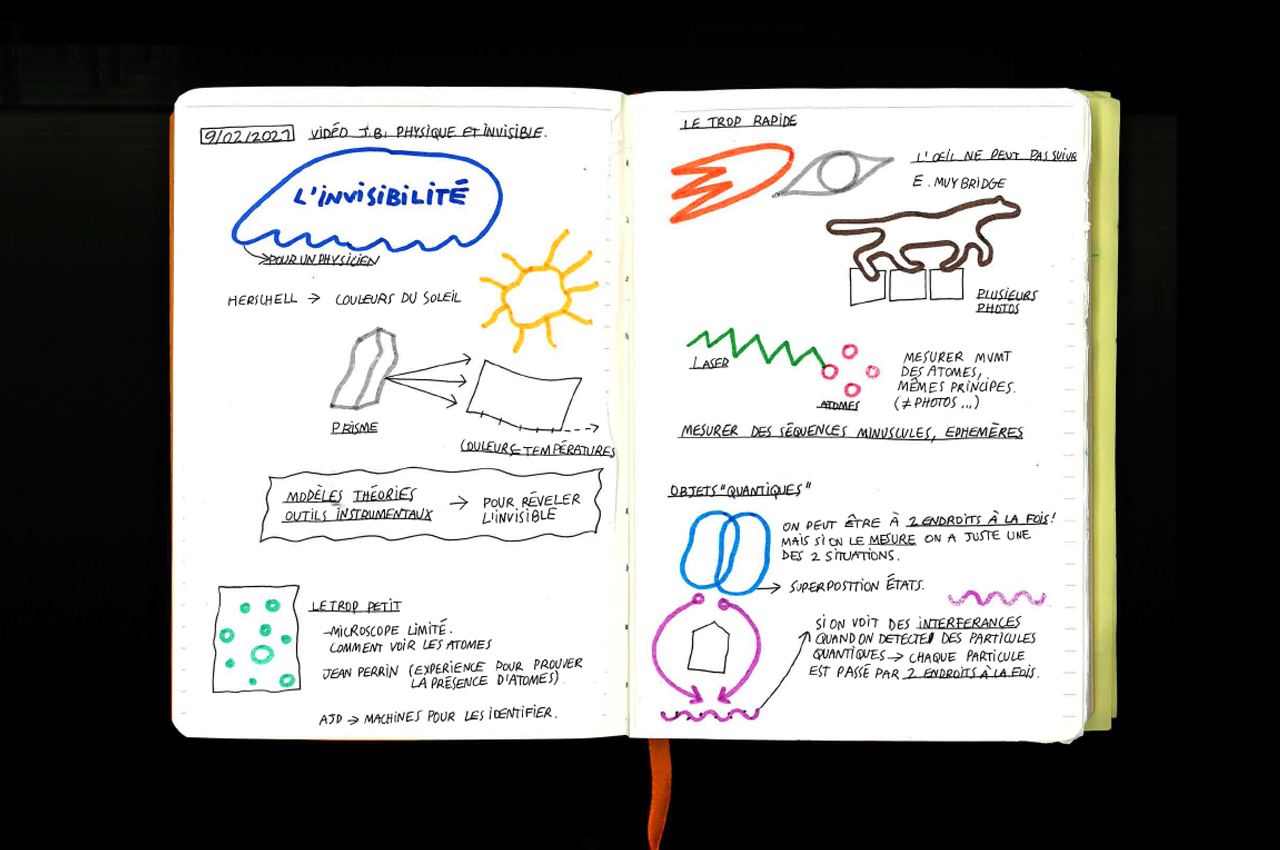 9/02/2021 VIDÉO J.B. PHYSIQUE ET INVISIBLE.
L'INVISIBILITÉ
POUR UN PHYSICIEN
HERSCHELL → COULEURS DU SOLEIL
PRISME
COULEURS TEMPÉRATURES
MODÈLES THÉORIES
OUTILS INSTRUMENTAUX
→ POUR RÉVELER
L'INVISIBLE
LE TROP PETIT
-MICROSCOPE LIMITÉ.
COMMENT VOIR LES ATOMES
JEAN PERRIN (EXPERIENCE POUR PROUVER
LA PRÉSENCE D'ATOMES).
AJD → MACHINES POUR LES IDENTIFIER.
LE TROP RAPIDE
L'ŒIL NE PEUT PAS SUIVRE
E. MUYBRIDGE
PLUSIEURS
PHOTOS
LASER
ATOMES
MESURER MVMT
DES ATOMES,
MÊMES PRINCIPES.
(≠ PHOTOS ...)
MESURER DES SÉQUENCES MINUSCULES, EPHEMÈRES
OBJETS "QUANTIQUES"
ON PEUT ÊTRE À 2 ENDROITS À LA FOIS!
MAIS SI ON LE MESURE ON A JUSTE UNE
DES 2 SITUATIONS.
→ SUPERPOSITION ÉTATS.
SI ON VOIT DES INTERFERANCES
QUAND ON DETECTE DES PARTICULES
QUANTIQUES → CHAQUE PARTICULE
EST PASSÉ PAR 2 ENDROITS À LA FOIS.